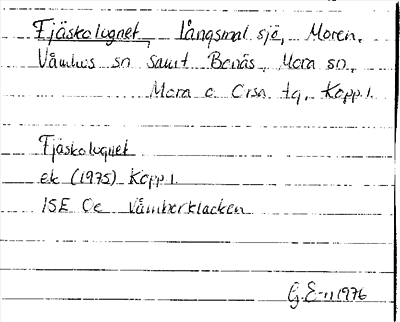 Fjäskolugnet, långsmal sjö, Moren,
Våmhus sn samt Bonäs, Mora sn,
Mora o Orsa tg, Kopp.l.
Fjäskolugnet
ek (1975) Kopp l.
15E 0e Våmberklacken
G.E-n 1976